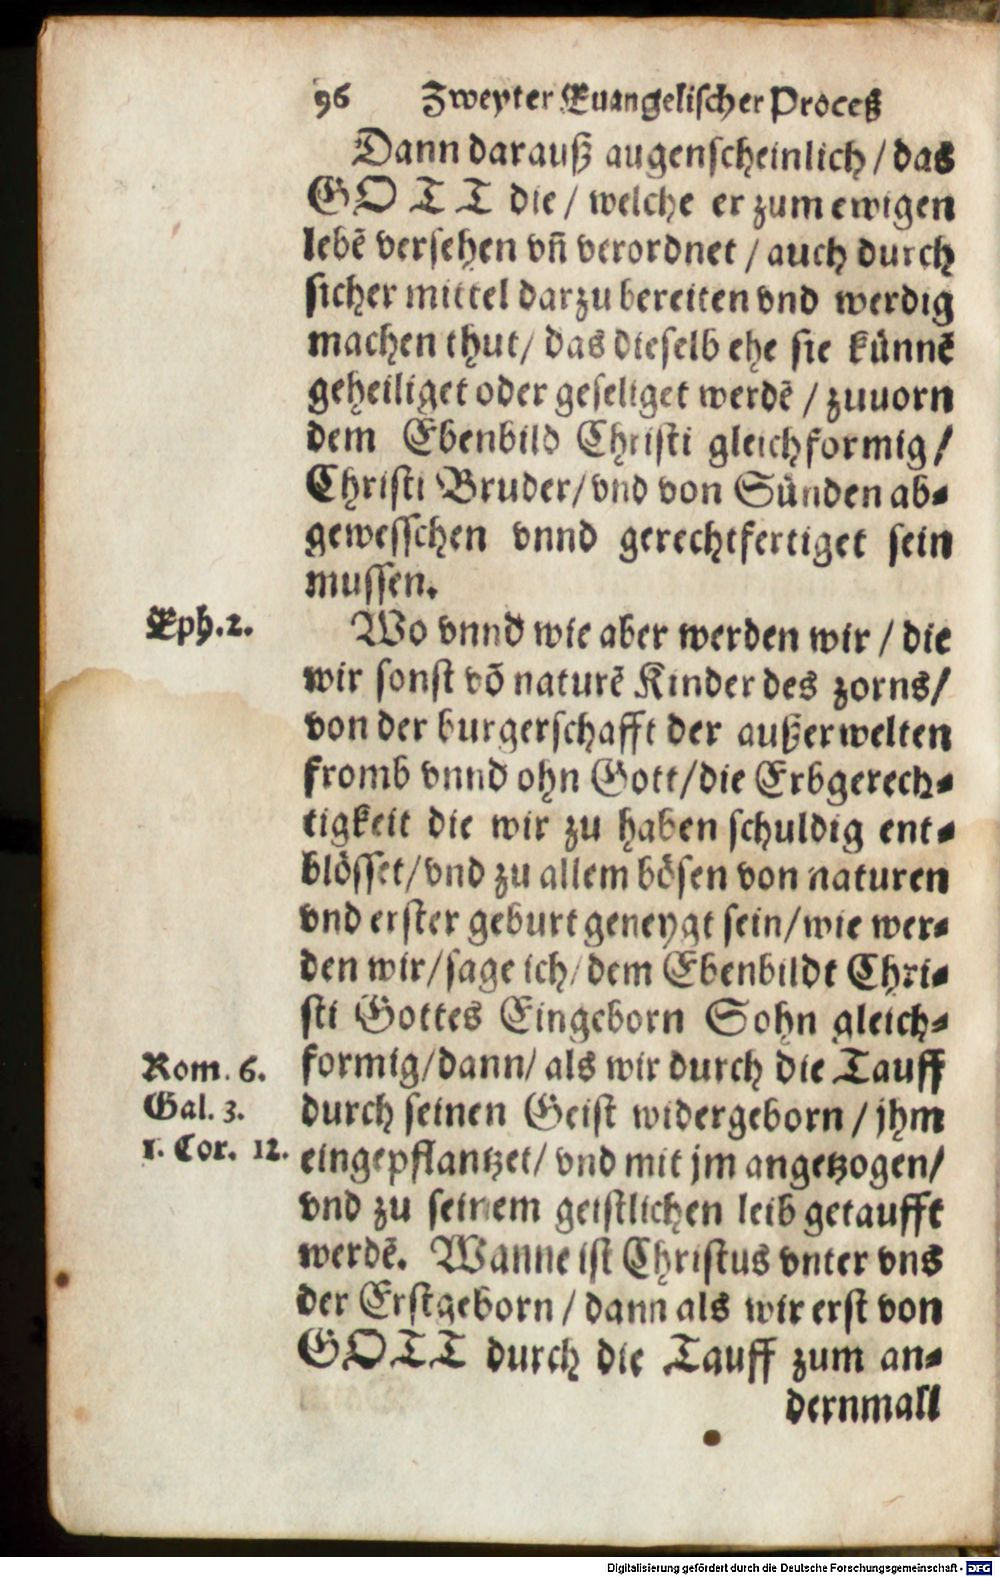 96 Zweyter Euangelischer Proceß
Dann darauß augenscheinlich / das
GOTT die / welche er zum ewigen
lebẽ versehen vñ verordnet / auch durch
sicher mittel darzu bereiten vnd werdig
machen thut / das dieselb ehe sie künnẽ
geheiliget oder geseliget werdẽ / zuuorn
dem Ebenbild Christi gleichformig /
Christi Bruder / vnd von Sünden ab-
gewesschen vnnd gerechtfertiget sein
mussen.
Eph. 2.
Wo vnnd wie aber werden wir / die
wir sonst võ naturẽ Kinder des zorns /
von der burgerschafft der außerwelten
fromb vnnd ohn Gott / die Erbgerech-
tigkeit die wir zu haben schuldig ent-
blösset / vnd zu allem bösen von naturen
vnd erster geburt geneygt sein / wie wer-
den wir / sage ich / dem Ebenbildt Chri-
sti Gottes Eingeborn Sohn gleich-
Rom. 6.
formig / dann / als wir durch die Tauff
Gal. 3.
durch seinen Geist widergeborn / jhm
1. Cor. 12.
eingepflantzet / vnd mit jm angetzogen /
vnd zu seinem geistlichen leib getaufft
werdẽ. Wanne ist Christus vnter vns
der Erstgeborn / dann als wir erst von
GOTT durch die Tauff zum an-
dernmall
Digitalisierung gefördert durch die Deutsche Forschungsgemeinschaft - DFG